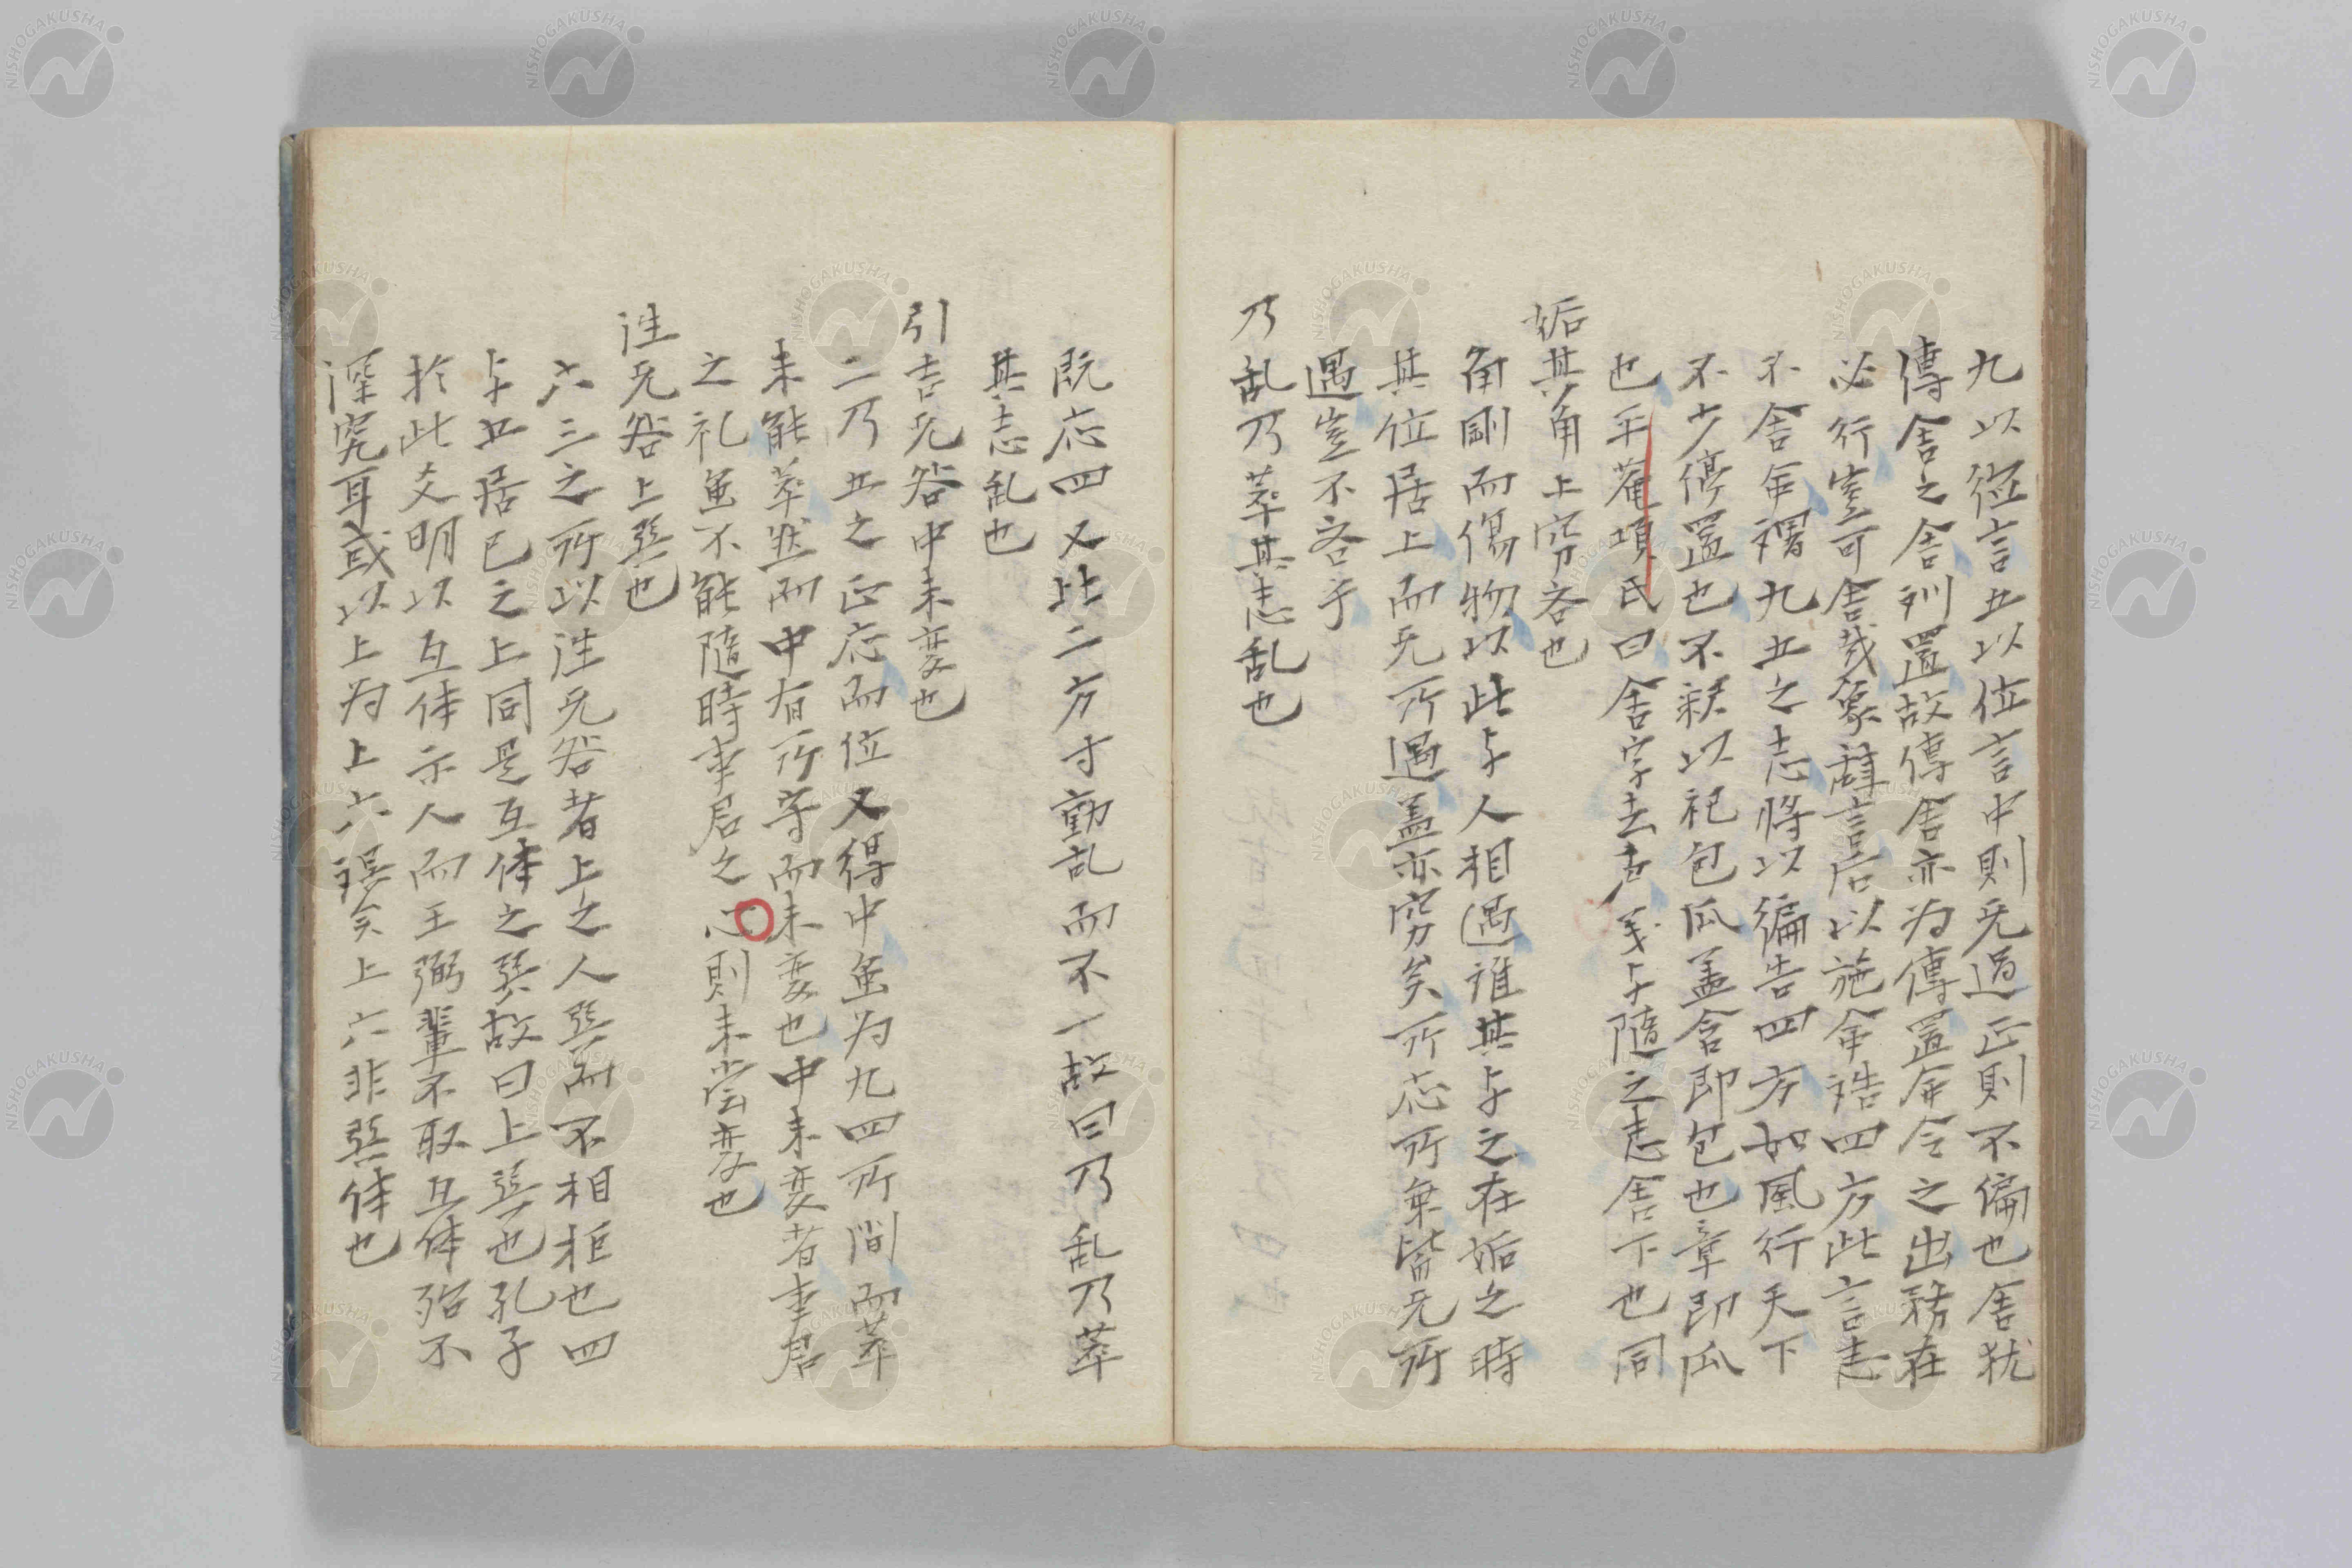 九以徳言五以位言中則无過正則不偏也舍犹
停舍之舍訓置故停舍亦为停置命令之出務在
必行豈可舍哉象辭言后以施命誥四方此言志
不舍命謂九五之志将以徧告四方如風行天下
不少停置也不釈以杞包瓜盖含即包也章即瓜
也平菴項氏曰舍字去声義与隨之志舍下也同
姤其角上窮吝也
角剛而傷物以此与人相遇誰其与之在姤之時
其位居上而无所遇盖亦窮矣所応所乗皆无所
遇豈不吝乎
乃乱乃萃其志乱也
既応四又比二方寸動乱而不一故曰乃乱乃萃
其志乱也
引吉无咎中未変也
二乃五之正応而位又得中虽为九四所間而萃
未能萃然而中有所守而未変也中未変者事君
之礼虽不能隨時事君之心則未尝変也
往无咎上巽也
六三之所以往无咎者上之人巽而不相拒也四
与五居已之上同是互体之巽故曰上巽也孔子
於此爻明以互体示人而王弼輩不取互体殆不
深究耳或以上为上六誤矣上六非巽体也